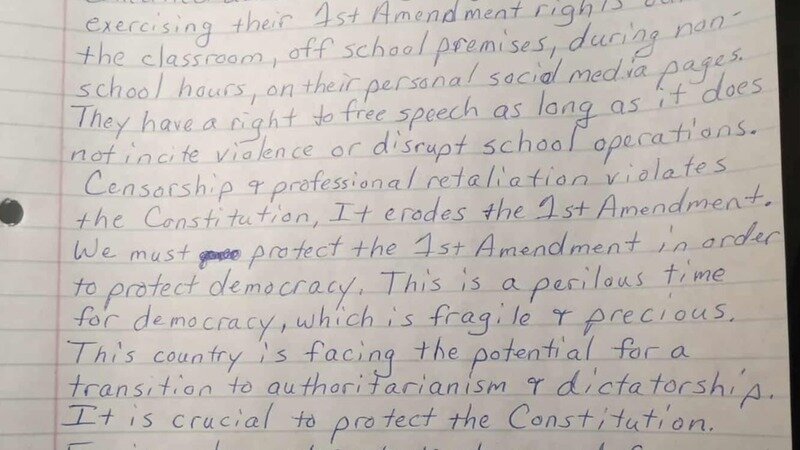 exercising their 1st Amendment rights
the classroom, off school premises, during non-
school hours, on their personal social media pages.
They have a right to free speech as long as it does
not incite violence or disrupt school operations.
Censorship & professional retaliation violates
the Constitution, It erodes the 1st Amendment.
We must protect the 1st Amendment in order
to protect democracy. This is a perilous time
for democracy, which is fragile & precious.
This country is facing the potential for a
transition to authoritarianism & dictatorship.
It is crucial to protect the Constitution.